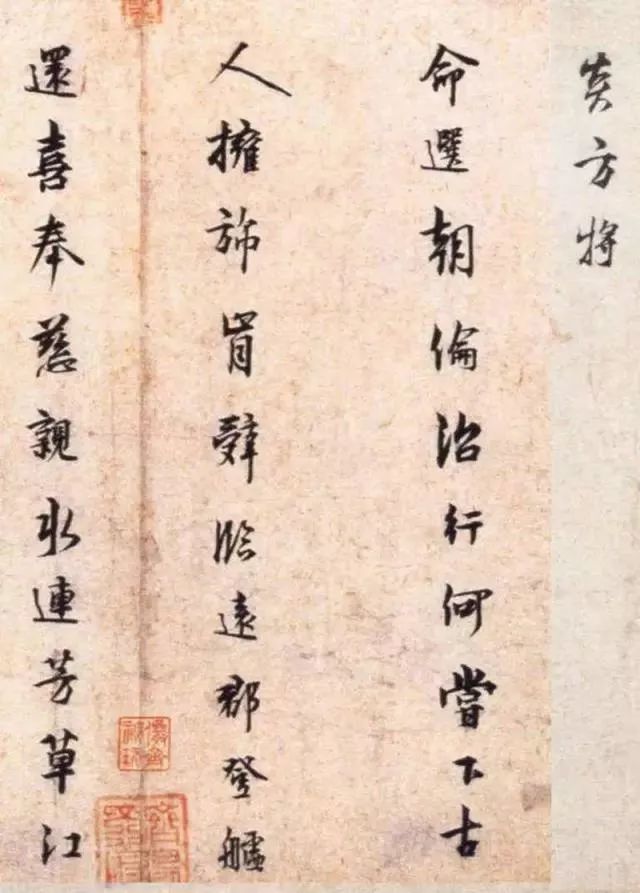 炎方將
命選朝倫治行何嘗下古
人擁旆肯辭臨遠郡登艫
還喜奉慈親水連芳草江